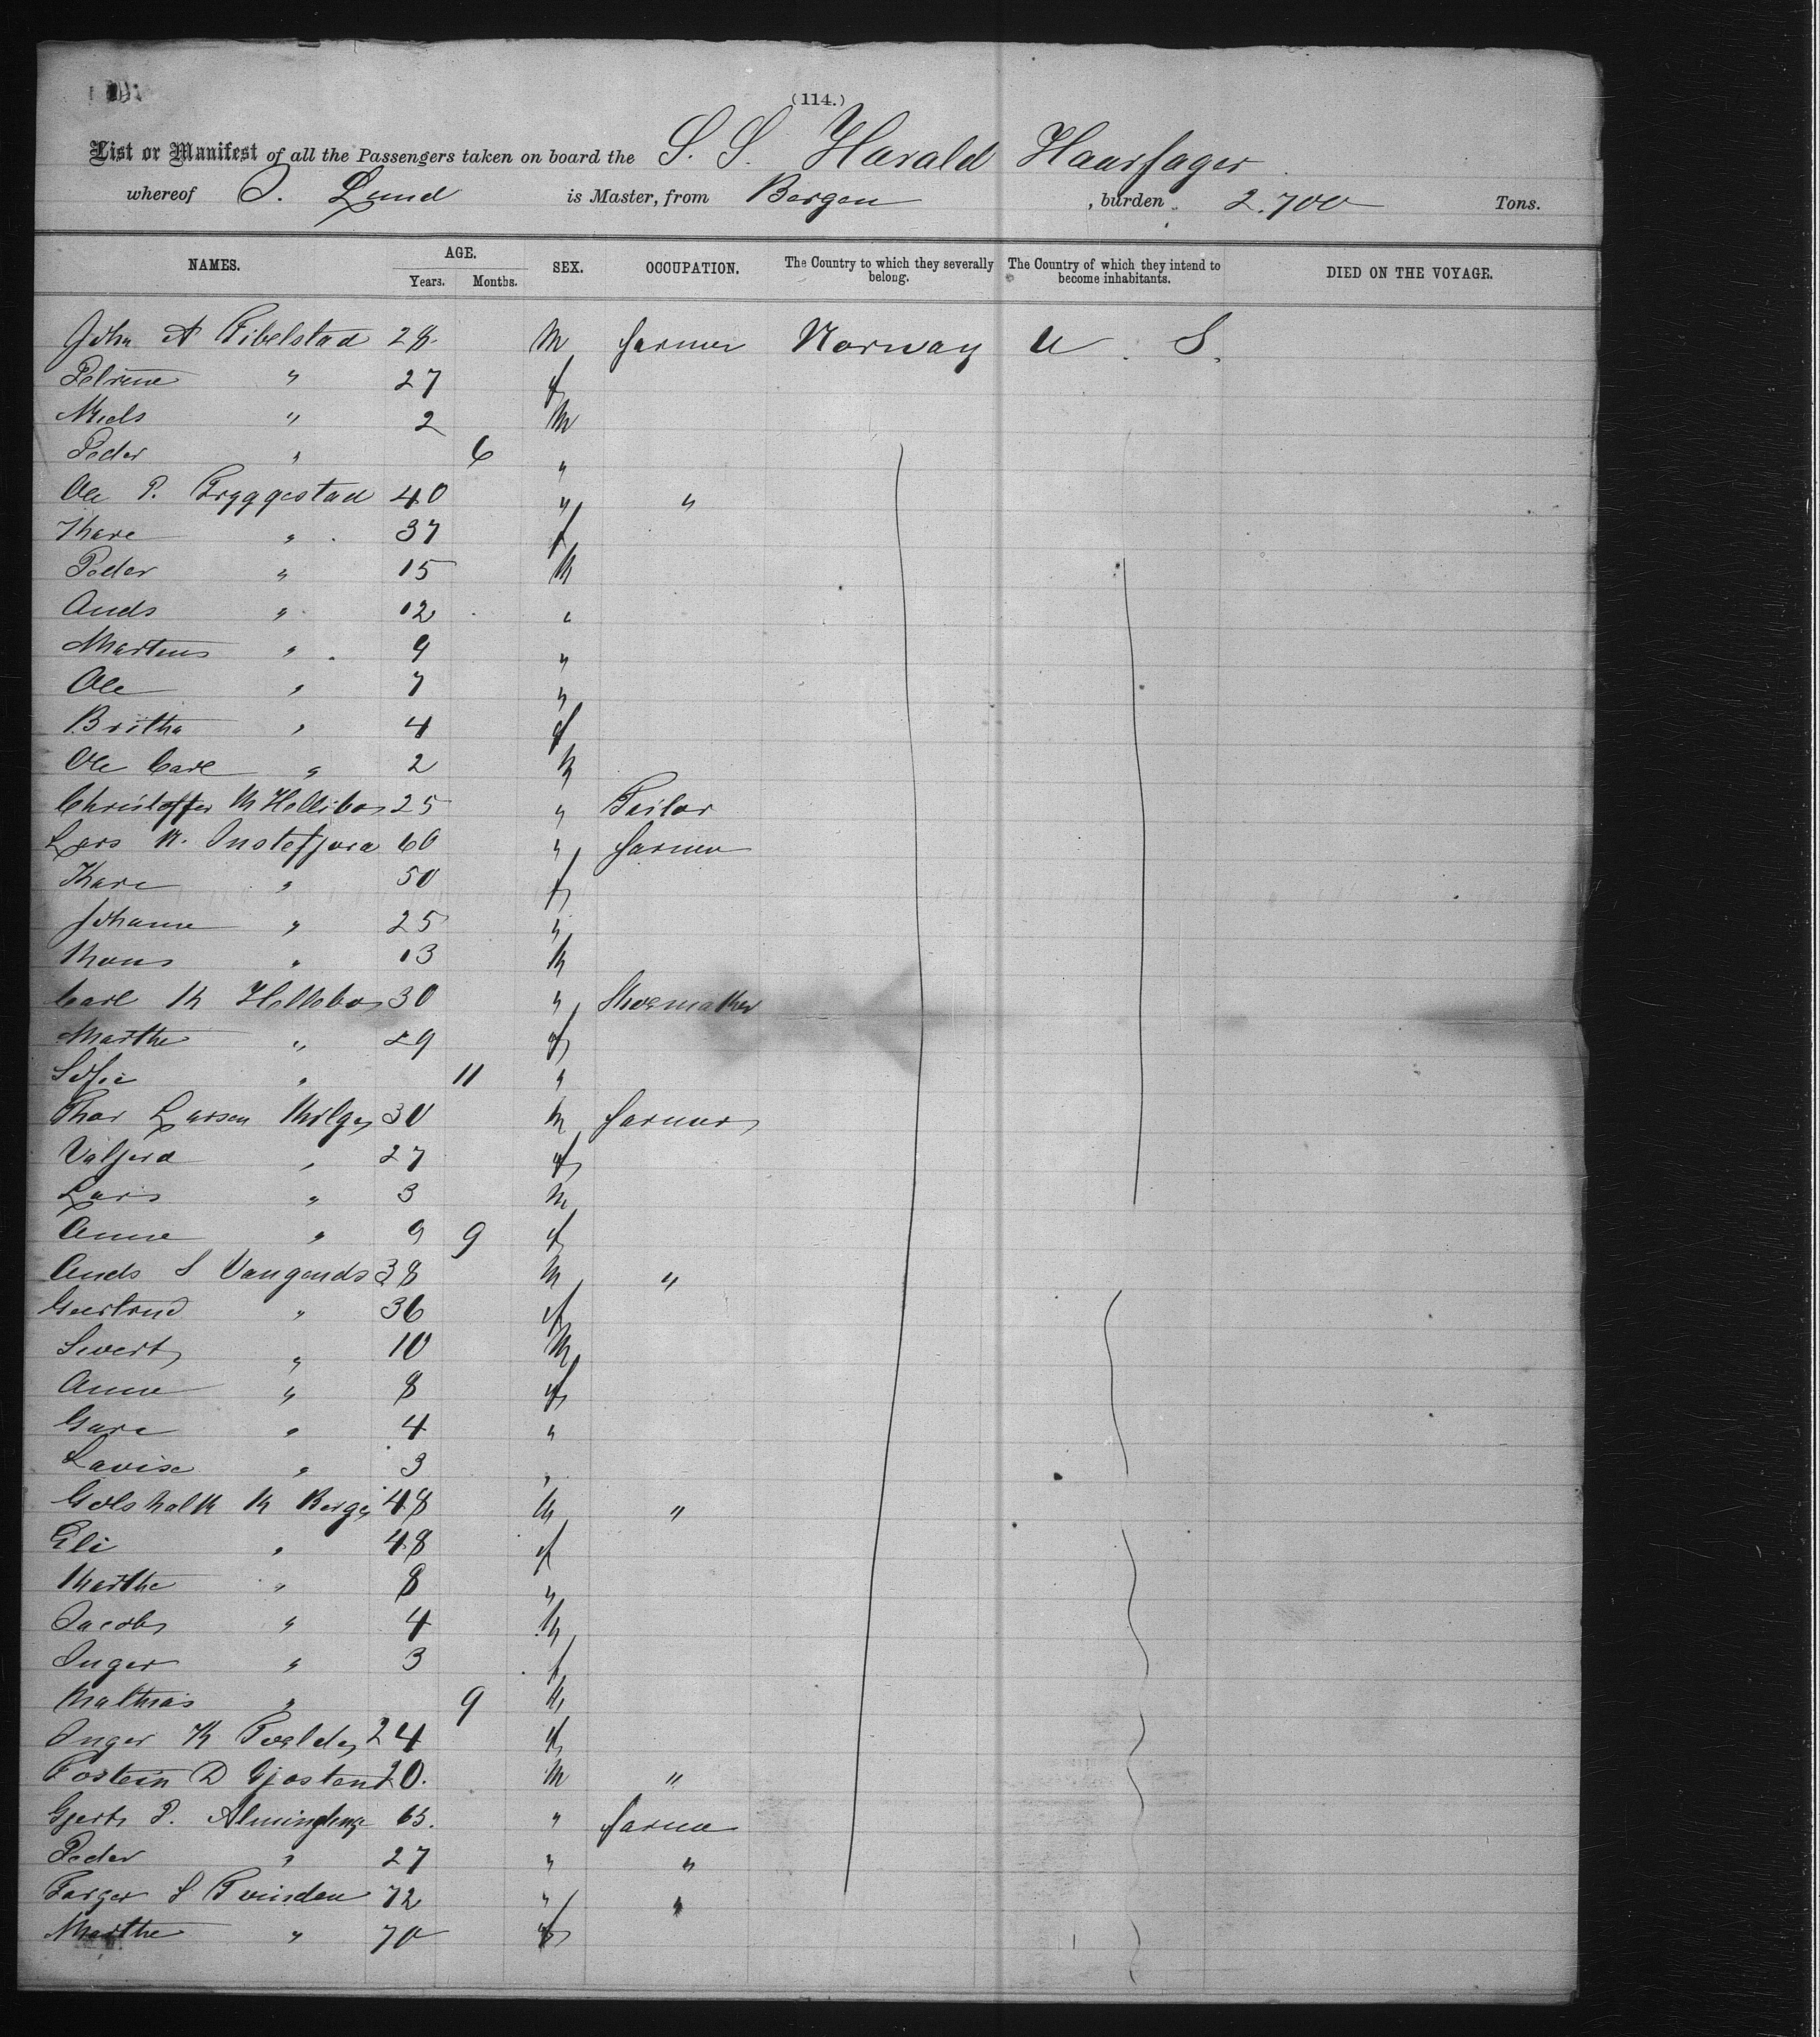 (114.)
List or Manifest of all the Passengers taken on board the S. S. Harald Haarfager
whereof O. Lund is Master, from Bergen, burden 2.700 Tons.
NAMES. AGE. Years. Months. SEX. OCCUPATION. The Country to which they severally belong. The Country of which they intend to become inhabitants. DIED ON THE VOYAGE.
John A Fibelstad 28 M farmer Norway U. S.
Pelrine " 27 f
Niels " 2 M
Peder " 6 "
Ole P. Tryggestad 40 " "
Kare " 37 f
Peder " 15 M
Ands " 12 "
Martens " 9 "
Ole " 7 "
Britha " 4 f
Ole Carl " 2 M
Christoffer M Hellibo 25 " Tailor
Lars K. Onstefjora 60 " farmer
Kare " 50 f
Johanne " 25 "
Mons " 13 M
Carl M Hellebo 30 " Shoemaker
Marthe " 29 f
Sofie " 11 "
Thor Larsen 30 M farmer
Valjera " 27 f
Lars " 3 M
Anne " 9 9 f
Ands S Vangends 38 M "
Geertrud " 36 f
Sivert " 10 M
Anne " 8 f
Gure " 4 "
Lavise " 3 "
Golshalk K Berge 48 M "
Eli " 48 f
Marthe " 8 "
Jacob " 4 M
Inger " 3 f
Mathias " 9 M
Inger K Tvelde 24 f
Tostein D Gjosten 20. M "
Gjert P. Alminding 65. " farmer
Peder " 27 " "
Torger S Tvinden 72 " "
Marthe " 70 f